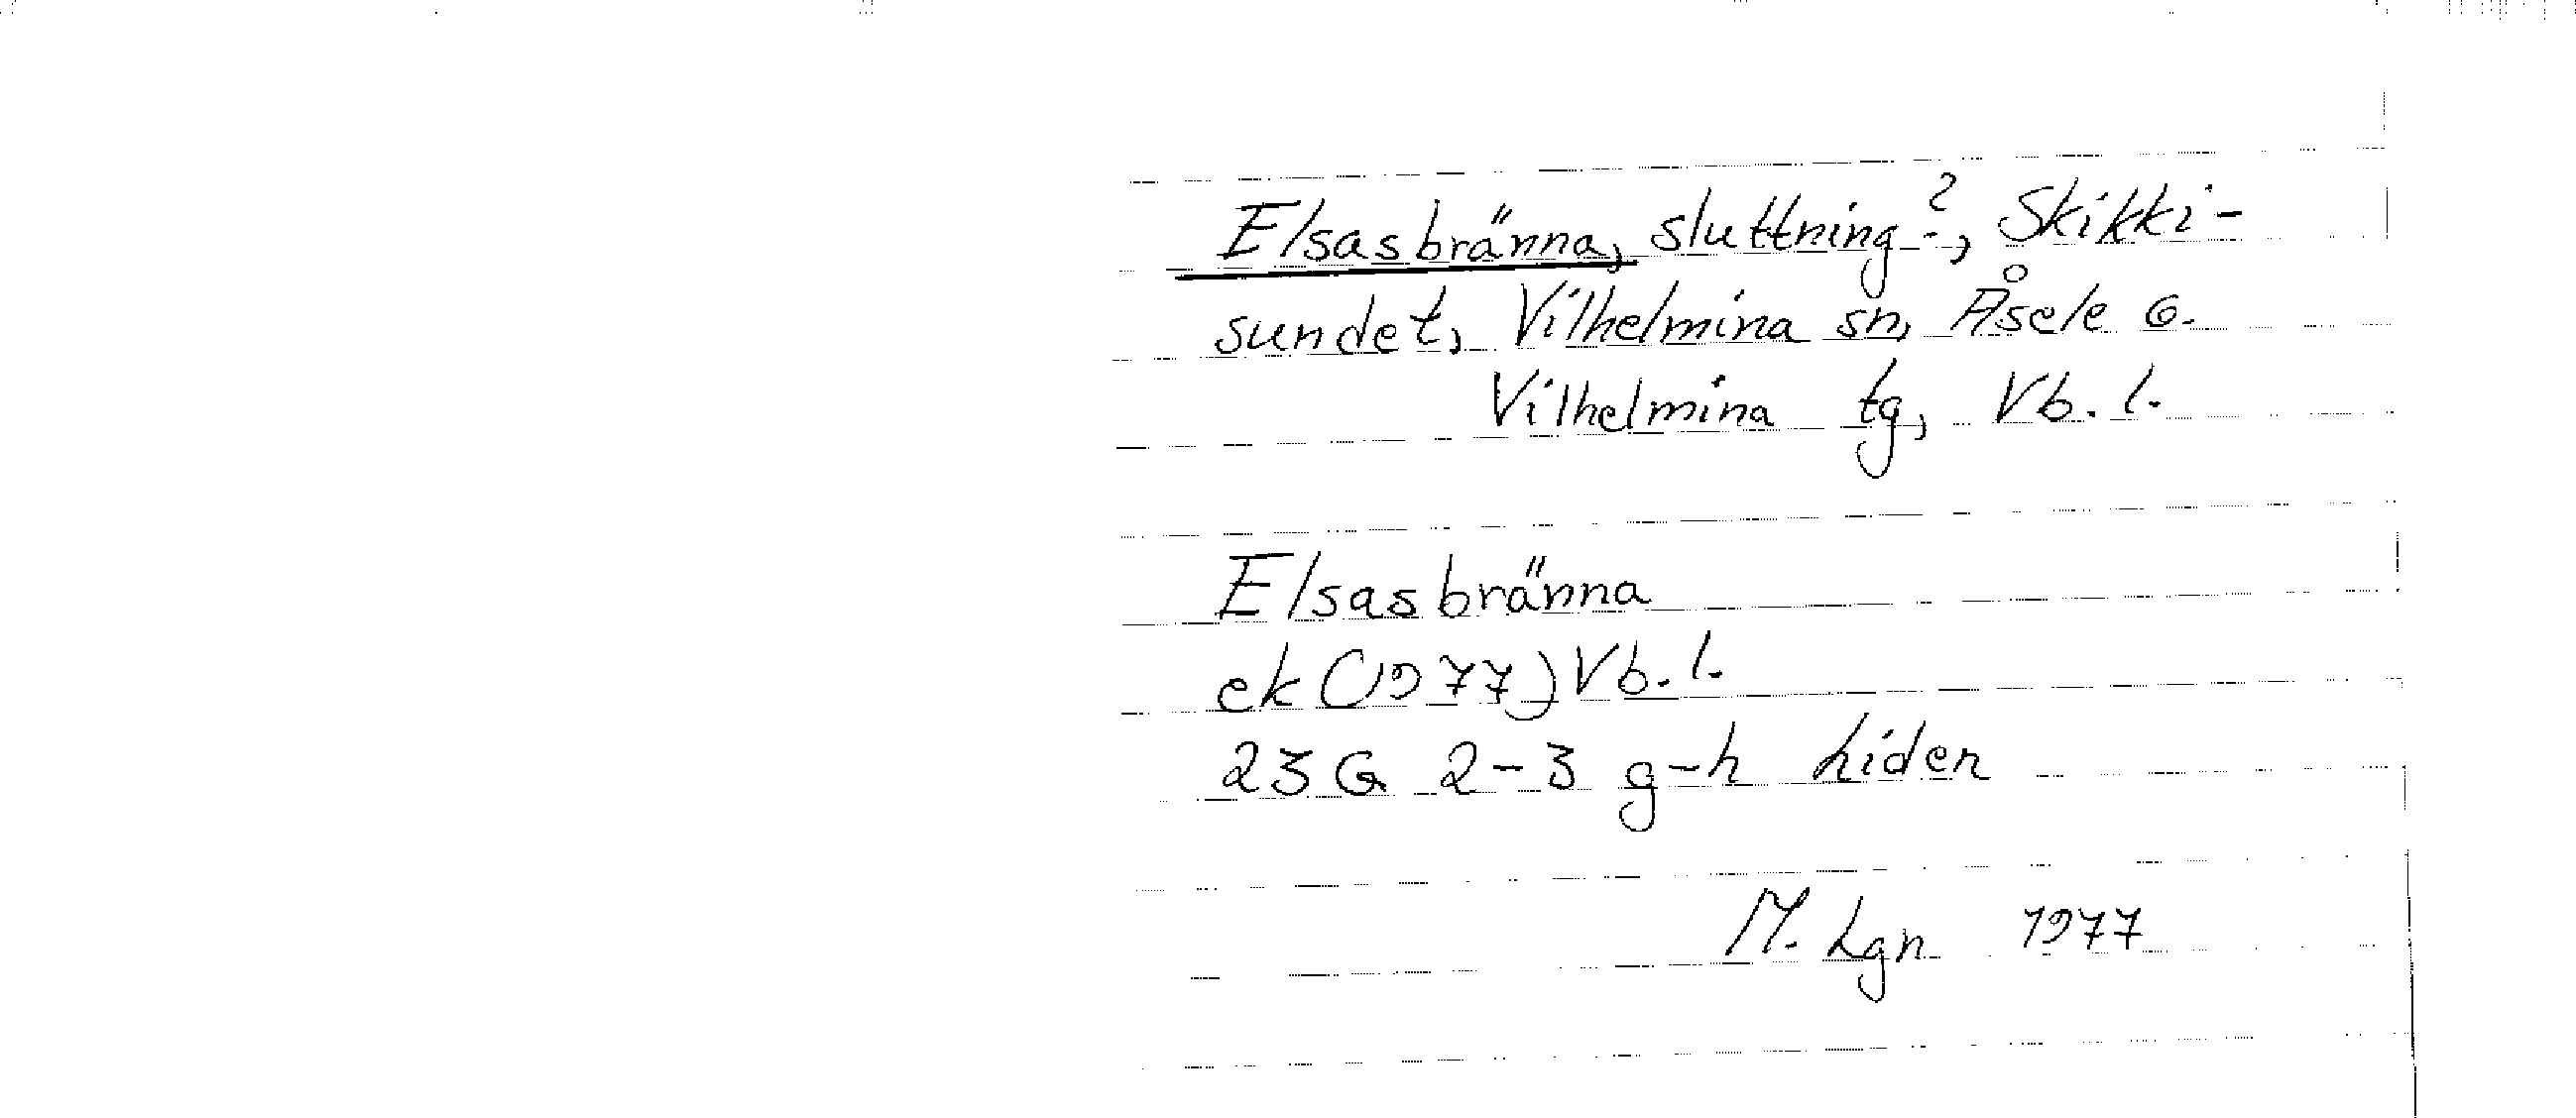 Elsasbränna, sluttning?, Skikki-
sundet, Vilhelmina sn, Åsele G.
Vilhelmina tg, Vb. l.
Elsasbränna
ek (1977) Vb. l.
23 G 2-3 g-h Liden
M. Lgn 1977